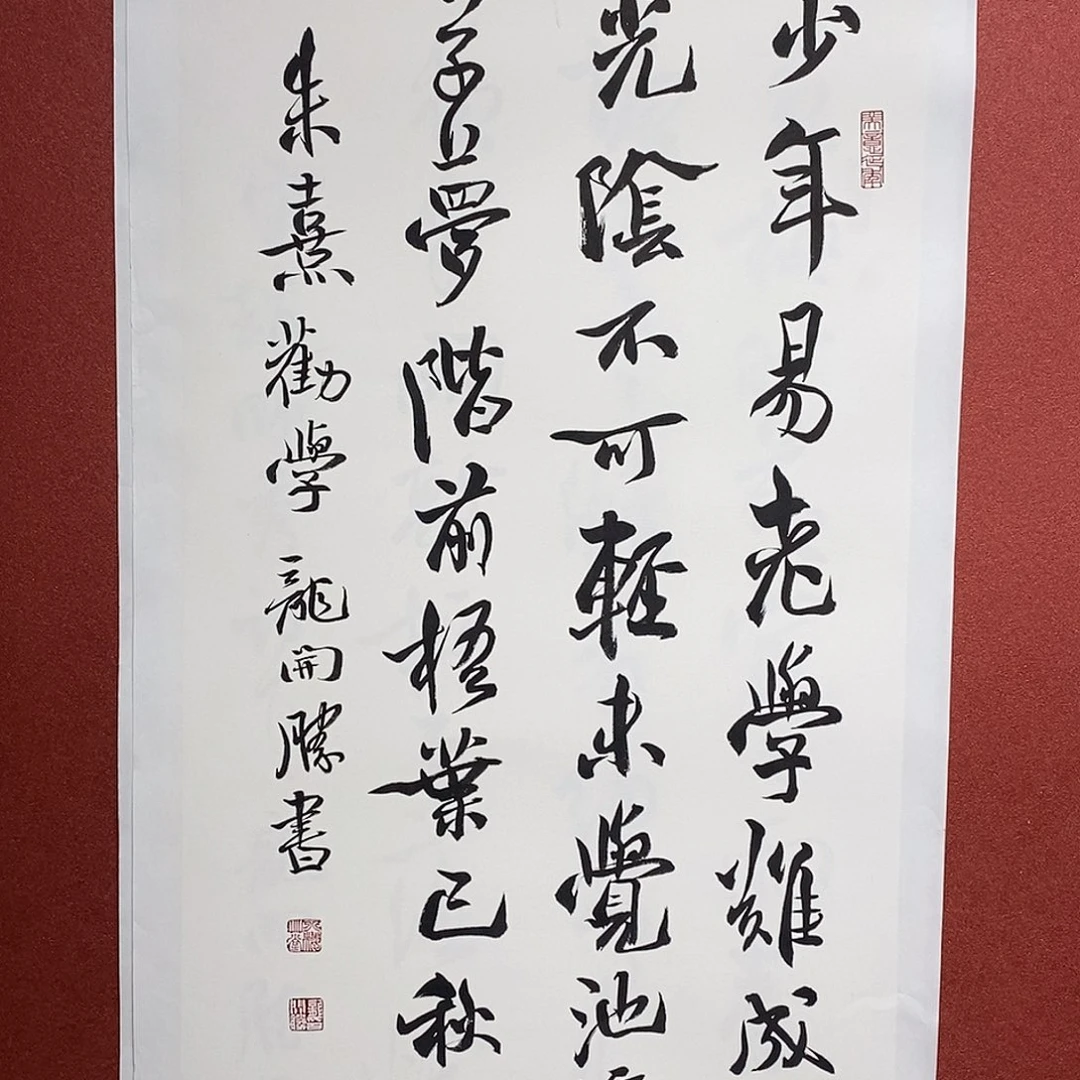 少年易老學難成
光陰不可輕未覺池
夢階前梧葉已秋
朱熹勸學 龍開勝書